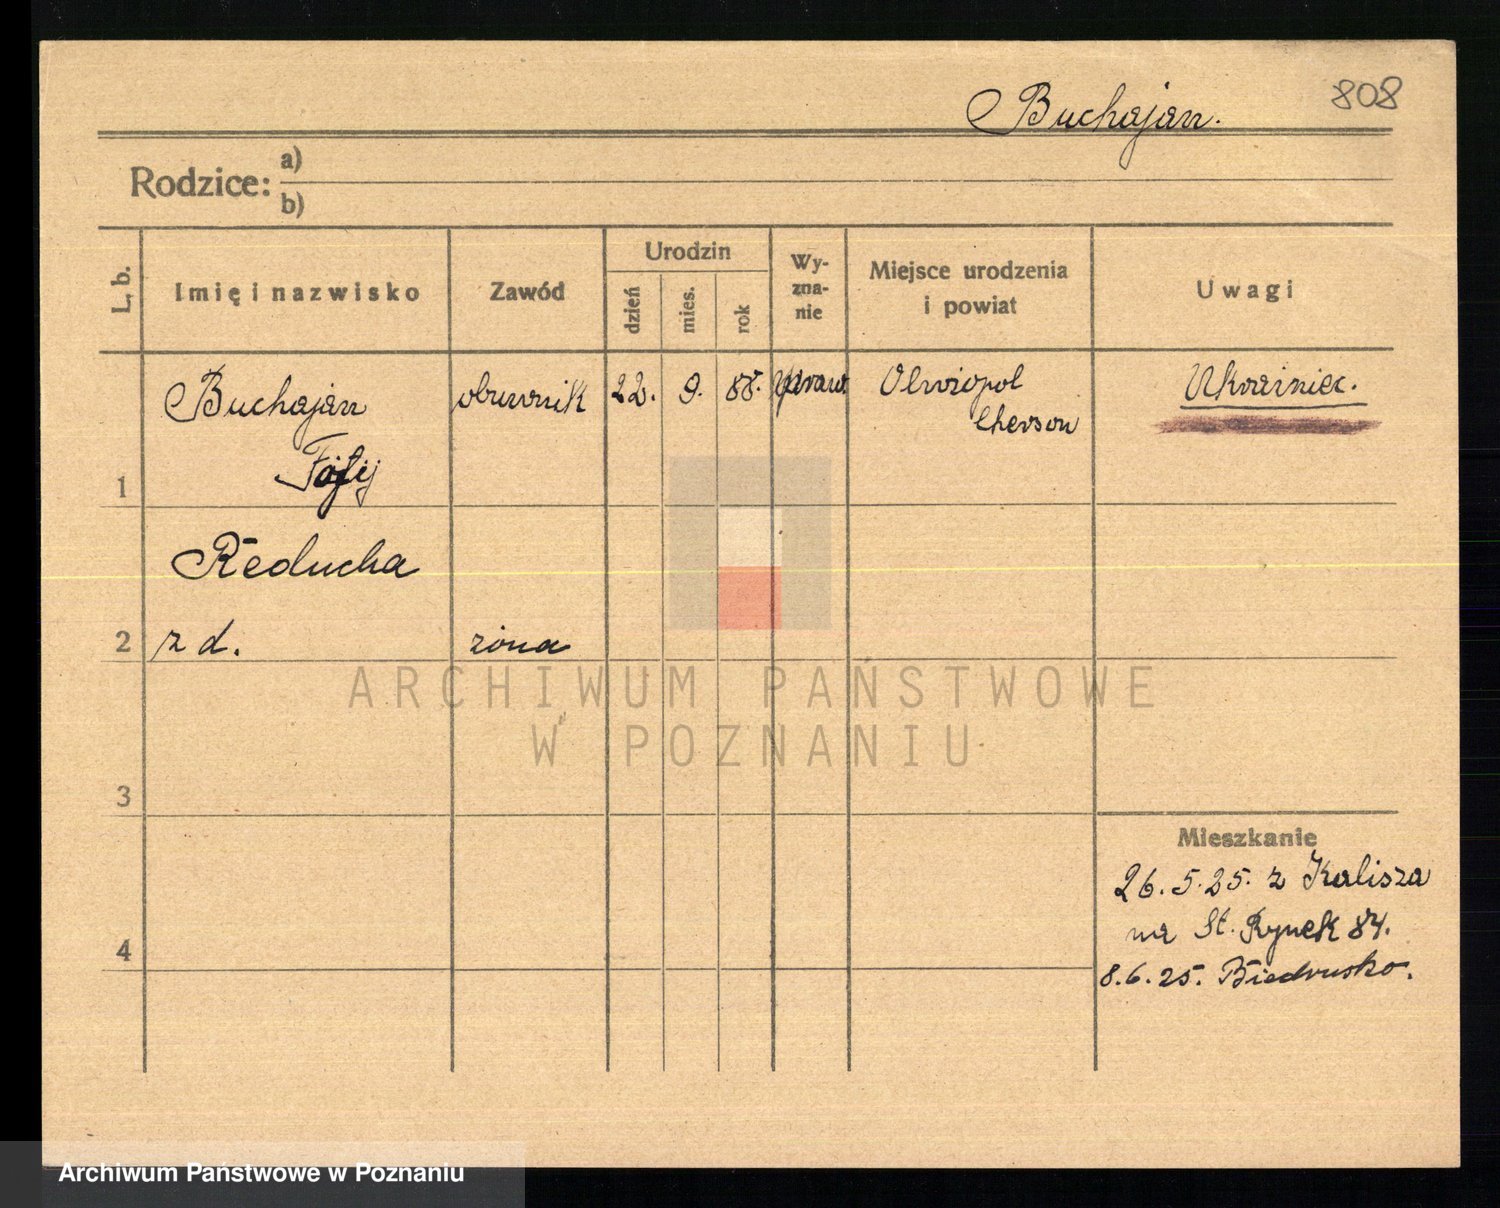 Buchajan.
808
Rodzice:
a)
b)
L. b.
Imię i nazwisko
Zawód
Urodzin
dzień
mies.
rok
Wy-
zna-
nie
Miejsce urodzenia
i powiat
Uwagi
1
Buchajan
obuwnik
22.
9.
88.
praw.
Olwiopol
Cherson
Ukrainiec.
2
Reducha
z d.
żona
3
4
Mieszkanie
26.5.25. z Kalisza
na St. Rynek 84.
8.6.25. Biedrusko.
ARCHIWUM PAŃSTWOWE
W POZNANIU
Archiwum Państwowe w Poznaniu